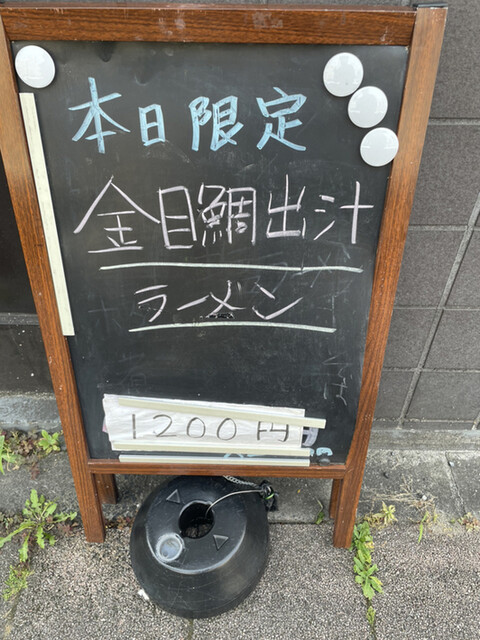 本日限定
金目鯛出汁
ラーメン
1200円